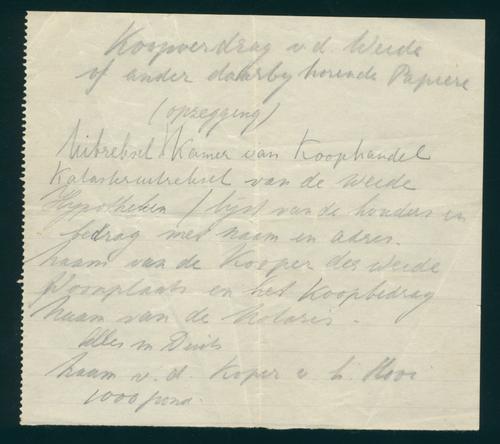 Koopverdrag v.d. Weide
of ander daarby horende Papiere
(opzegging)
Uitreksel Kamer van Koophandel
Katasteruitreksel van de Weide
Hypotheken / lijst van de houders en
bedrag met naam en adres.
Naam van de Kooper der Weide
Woonplaats en het Koopbedrag
Naam van de Notaris.
Alles in Duits
Naam v. d. Koper v. h. Hooi
1000 pond.